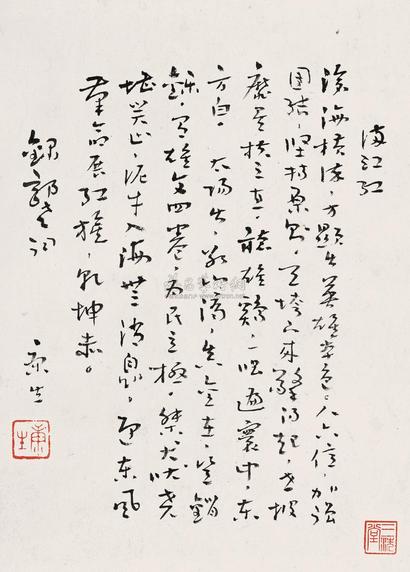 满江红
滄海橫流，方顯出英雄本色。人六億，加強
团结，坚持原则。天垮下来擎得起，世披
靡矣扶之直。聽雄鷄一唱遍寰中，东
方白。太陽出，冰山滴，真金在，岂銷
鑠，有雄文四卷，为民立極。桀犬吠尧
堪笑止，泥牛入海無消息。迎东风
革命展红旗，乾坤赤。
錄郭老词
康生
康生